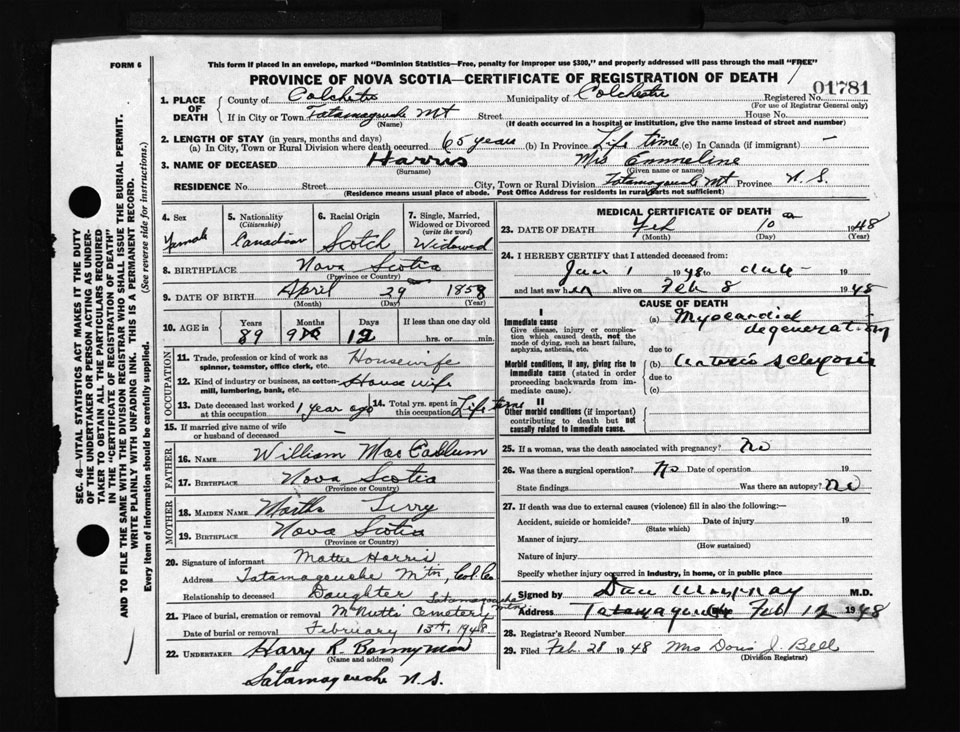 FORM 6
This form if placed in an envelope, marked "Dominion Statistics—Free, penalty for improper use $300," and properly addressed will pass through the mail "FREE"
PROVINCE OF NOVA SCOTIA—CERTIFICATE OF REGISTRATION OF DEATH
01781
1. PLACE OF DEATH
County of Colchester Municipality of Colchester Registered No.
(For use of Registrar General only)
If in City or Town Tatamagouche Mt Street House No.
(Name) (If death occurred in a hospital or institution, give the name instead of street and number)
2. LENGTH OF STAY (in years, months and days)
(a) In City, Town or Rural Division where death occurred 65 years (b) In Province Life time (c) In Canada (if immigrant) —
3. NAME OF DECEASED Harris Mrs Emmeline
(Surname) (Given name or names)
RESIDENCE No. Street City, Town or Rural Division Tatamagouche Mt Province N. S.
(Residence means usual place of abode. Post Office Address for residents in rural parts not sufficient)
4. Sex Female
5. Nationality (Citizenship) Canadian
6. Racial Origin Scotch
7. Single, Married, Widowed or Divorced (write the word) Widowed
8. BIRTHPLACE Nova Scotia
(Province or Country)
9. DATE OF BIRTH April 29 1858
(Month) (Day) (Year)
10. AGE in Years Months Days If less than one day old
89 9 12 hrs. or min.
OCCUPATION
11. Trade, profession or kind of work as spinner, teamster, office clerk, etc. Housewife
12. Kind of industry or business, as cotton-mill, lumbering, bank, etc. House wife
13. Date deceased last worked at this occupation 1 year ago
14. Total yrs. spent in this occupation Life time
15. If married give name of wife or husband of deceased —
FATHER
16. NAME William MacCallum
17. BIRTHPLACE Nova Scotia
(Province or Country)
MOTHER
18. MAIDEN NAME Martha
19. BIRTHPLACE Nova Scotia
(Province or Country)
20. Signature of informant Mattie Harris
Address Tatamagouche Mtn Col. Co.
Relationship to deceased Daughter
21. Place of burial, cremation or removal McNutts Cemetery Tatamagouche Mtn
Date of burial or removal February 13th, 1948
22. UNDERTAKER Harry R. Bonnyman
(Name and address)
Tatamagouche N. S.
MEDICAL CERTIFICATE OF DEATH
23. DATE OF DEATH Feb 10 1948
(Month) (Day) (Year)
24. I HEREBY CERTIFY that I attended deceased from:
Jan 1 1948 to date 19
and last saw her alive on Feb 8 1948
CAUSE OF DEATH
I
Immediate cause
Give disease, injury or complication which caused death, not the mode of dying, such as heart failure, asphyxia, asthenia, etc.
(a) Myocardial degeneration
due to
Morbid conditions, if any, giving rise to immediate cause (stated in order proceeding backwards from immediate cause).
(b) Arterio Sclerosis
due to
(c)
II
Other morbid conditions (if important) contributing to death but not causally related to immediate cause.
25. If a woman, was the death associated with pregnancy? no
26. Was there a surgical operation? No Date of operation 19
State findings Was there an autopsy? no
27. If death was due to external causes (violence) fill in also the following:—
Accident, suicide or homicide? Date of injury 19
(State which)
Manner of injury
(How sustained)
Nature of injury
Specify whether injury occurred in industry, in home, or in public place
Signed by Dan Murray M.D.
Address Tatamagouche Feb 12 1948
28. Registrar's Record Number
29. Filed Feb. 28 1948 Mrs Doris J. Bell
(Division Registrar)
SEC. 46—VITAL STATISTICS ACT MAKES IT THE DUTY
OF THE UNDERTAKER OR PERSON ACTING AS UNDER-
TAKER TO OBTAIN ALL THE PARTICULARS REQUIRED
IN THE "CERTIFICATE OF REGISTRATION OF DEATH"
AND TO FILE THE SAME WITH THE DIVISION REGISTRAR WHO SHALL ISSUE THE BURIAL PERMIT.
WRITE PLAINLY WITH UNFADING INK. THIS IS A PERMANENT RECORD.
Every item of information should be carefully supplied. (See reverse side for instructions.)